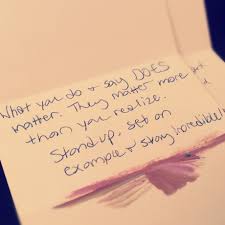 What you do & say DOES
matter. They matter more
than you realize.
Stand up, set an
example & stay Incredible!